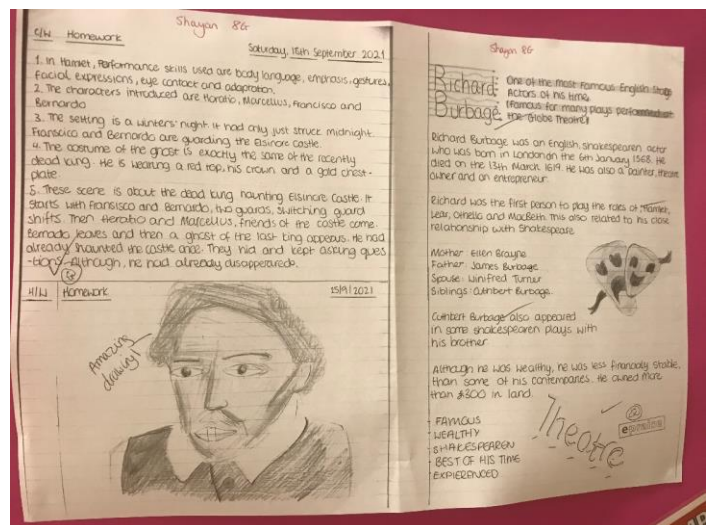 Shayan 8G
C/W Homework
Saturday, 18th September 2021
1. In Hamlet, Performance skills used are body language, emphasis, gestures,
facial expressions, eye contact and adaptation.
2. The characters introduced are Horatio, Marcellus, Francisco and
Bernardo
3. The setting is a winters' night. It had only just struck midnight.
Franscico and Bernardo are guarding the Elsinore castle.
4. The costume of the ghost is exactly the same of the recently
dead king. He is wearing a red top, his crown and a gold chest-
plate.
5. These scene is about the dead king haunting Elsinore Castle. It
starts with Fransisco and Bernardo, two guards, switching guard
shifts. Then Heratio and Marcellus, friends of the castle come.
Bernado leaves and then a ghost of the last king appears. He had
already haunted the castle once. They hid and kept asking ques
-tions although, he had already disappeared.
H/W Homework
15/9/2021
Amazing
drawing!
Shayan 8G
Richard
Burbage
One of the most Famous English Stage
Actors of his time.
(Famous for many plays performed at
the Globe Theatre)
Richard Burbage was an English, shakespearen actor
who was born in London on the 6th January 1568. He
died on the 13th March 1619. He was also a painter, theatre
owner and an entrepreneur.
Richard was the first person to play the roles of, Hamlet,
Lear, Othello and MacBeth. This also related to his close
relationship with Shakespeare
Mother: Ellen Brayne
Father: James Burbage
Spouse: Winifred Turner
Siblings: Cuthbert Burbage
Cuthbert Burbage also appeared
in some shakespearen plays with
his brother
Although he was wealthy, he was less financially stable,
than some of his contemparies. He owned more
than £300 in land.
- FAMOUS
- WEALTHY
- SHAKESPEAREN
- BEST OF HIS TIME
- EXPIERENCED
Theatre